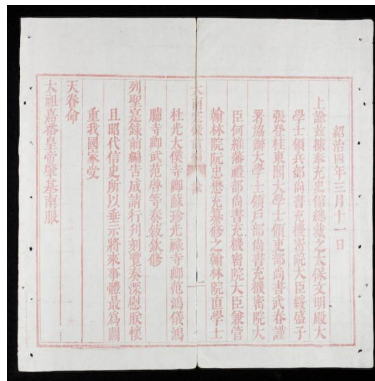 紹治四年三月十一日
上諭茲據奉充史館總裁之太保文明殿大
學士領兵部尚書充機密院大臣綏盛子
張登桂東閣大學士領吏部尚書武春謹
署協辦大學士領戶部尚書充機密院大
臣何維藩禮部尚書充機密院大臣兼管
翰林院阮忠懋充纂修之翰林院直學士
大南寔錄前編
諭
一
杜光太僕寺卿蘇珍光祿寺卿范鴻儀鴻
臚寺卿武范啓等奏敘欽修
列聖寔錄前編告成請行刊刻覽奏深慰朕懷
且昭代信史所以垂示將來事體最為關
重我國家受
天眷命
太祖嘉裕皇帝肇基南服